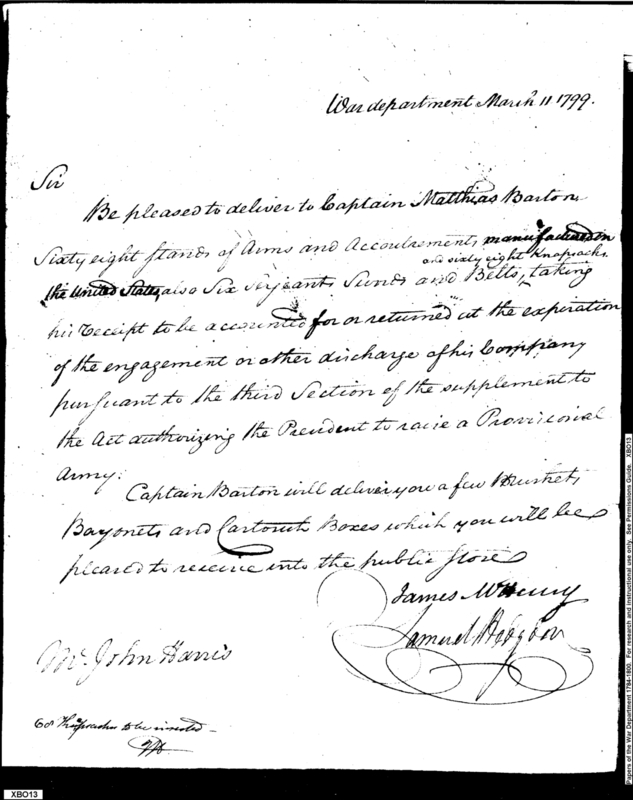 War department March 11 1799.
Sir
Be pleased to deliver to Captain Matthias Barton
Sixty eight Stands of Arms and Accoutrements manufactured in
and sixty eight Knapsacks
the United States, also Six Serjeants Swords and Belts, taking
his Receipt to be accounted for or returned at the expiration
of the engagement or other discharge of his Company
pursuant to the third Section of the supplement to
the Act authorizing the President to raise a Provisional
Army.
Captain Barton will deliver you a few Muskets
Bayonets and Cartouch Boxes which you will be
pleased to receive into the public Store
James McHenry
Samuel Hodgdon
Mr. John Harris
68 Knapsacks to be inserted
XBO13
Papers of the War Department 1784-1800. For research and instructional use only. See Permissions Guide. XBO13